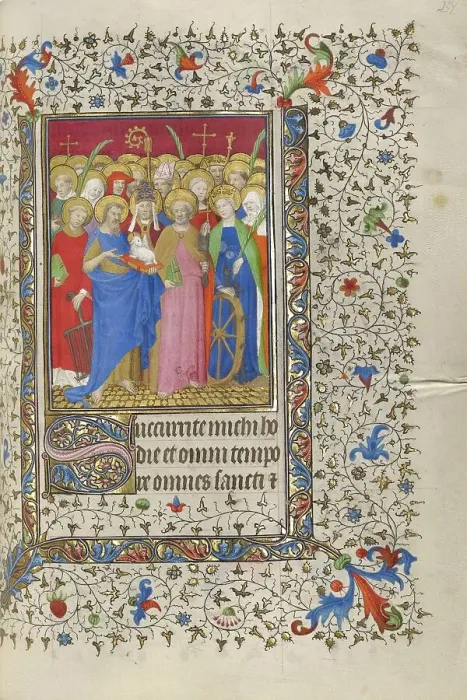 Succurrite michi ho
die et omni tempo
re omnes sancti ⁊